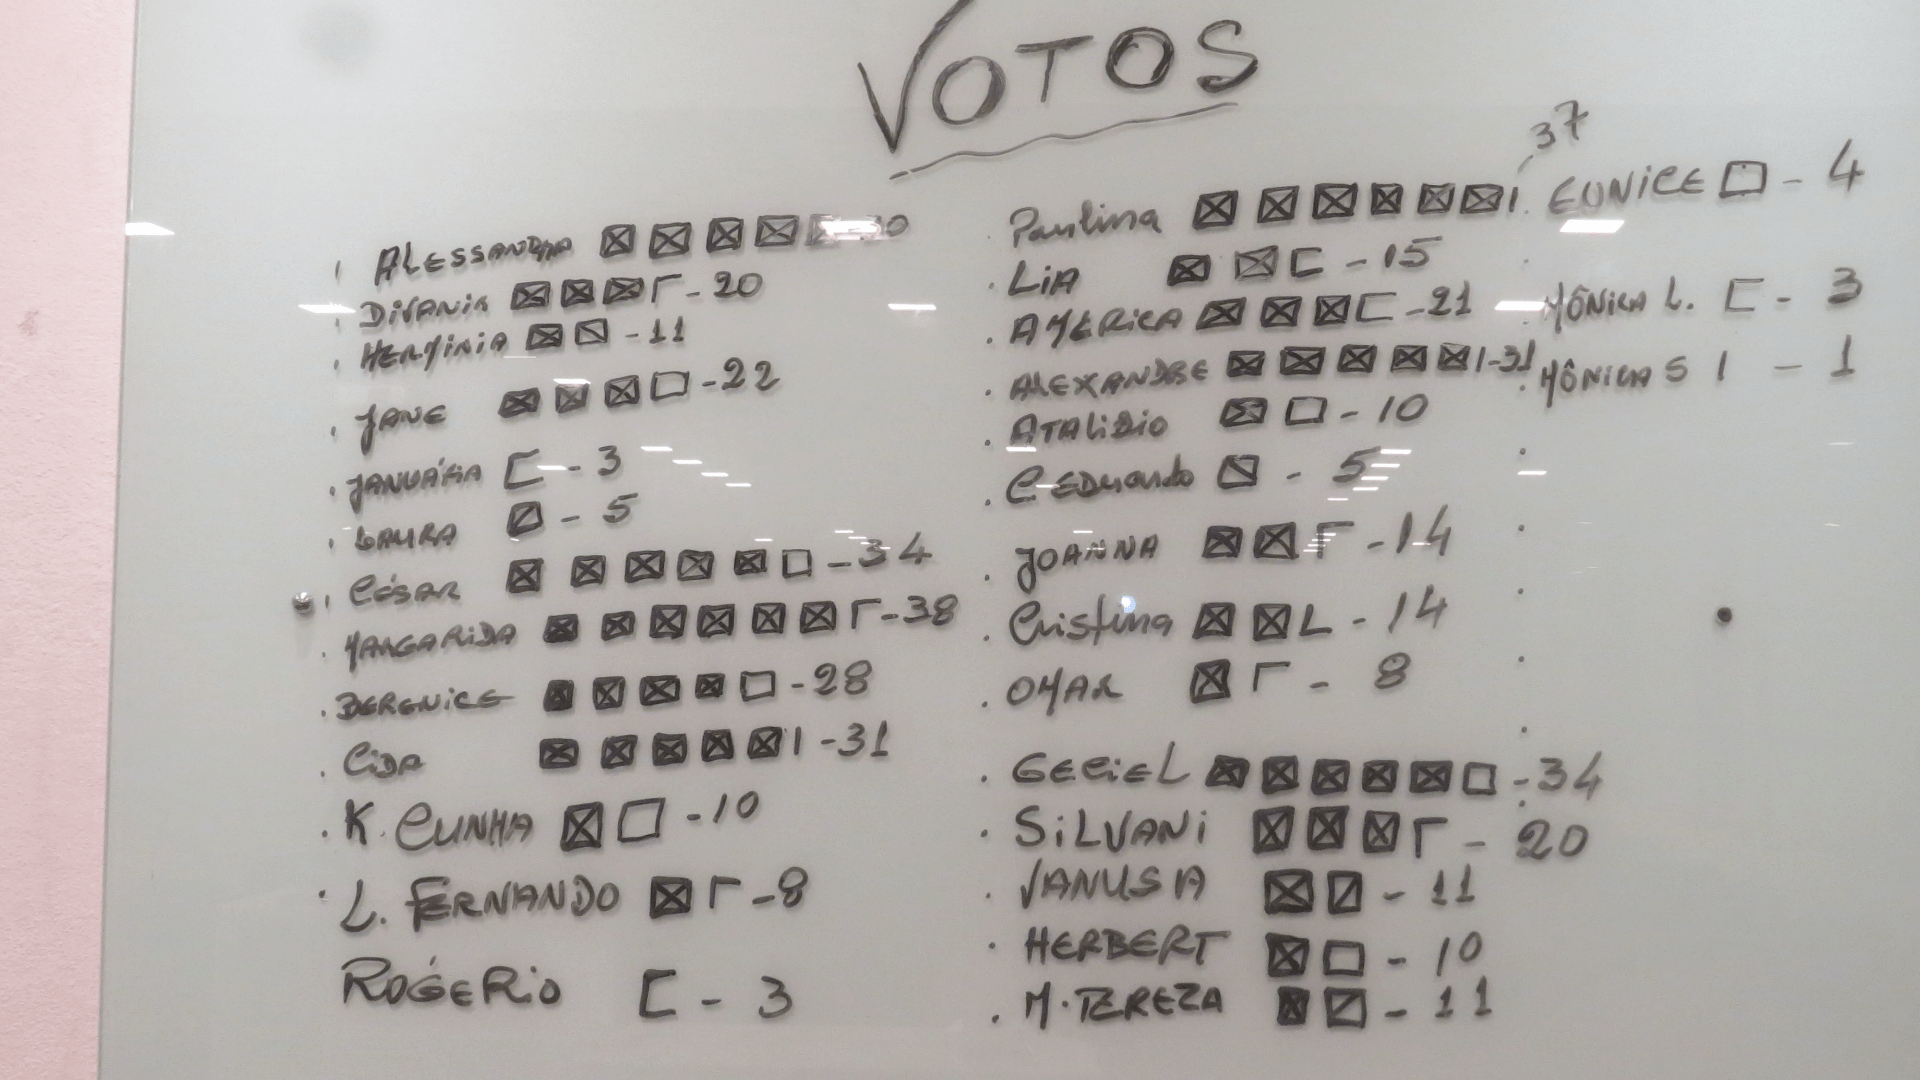 VOTOS
ALESSANDRA
DIVANIA - 20
HERMINIA - 11
JANE - 22
JANUÁRIA - 3
LAURA - 5
CÉSAR - 34
MARGARIDA - 38
BERENICE - 28
CIDA - 31
K. CUNHA - 10
L. FERNANDO - 8
ROGÉRIO - 3
Paulina 37
LIA - 15
AMÉRICA - 21
ALEXANDRE - 31
ATALIBIO - 10
C. EDUARDO - 5
JOANNA - 14
Cristina - 14
OMAR - 8
GECIEL - 34
SILVANI - 20
VANUSA - 11
HERBERT - 10
M. TEREZA - 11
EUNICE - 4
MÔNICA L. - 3
MÔNICA S - 1